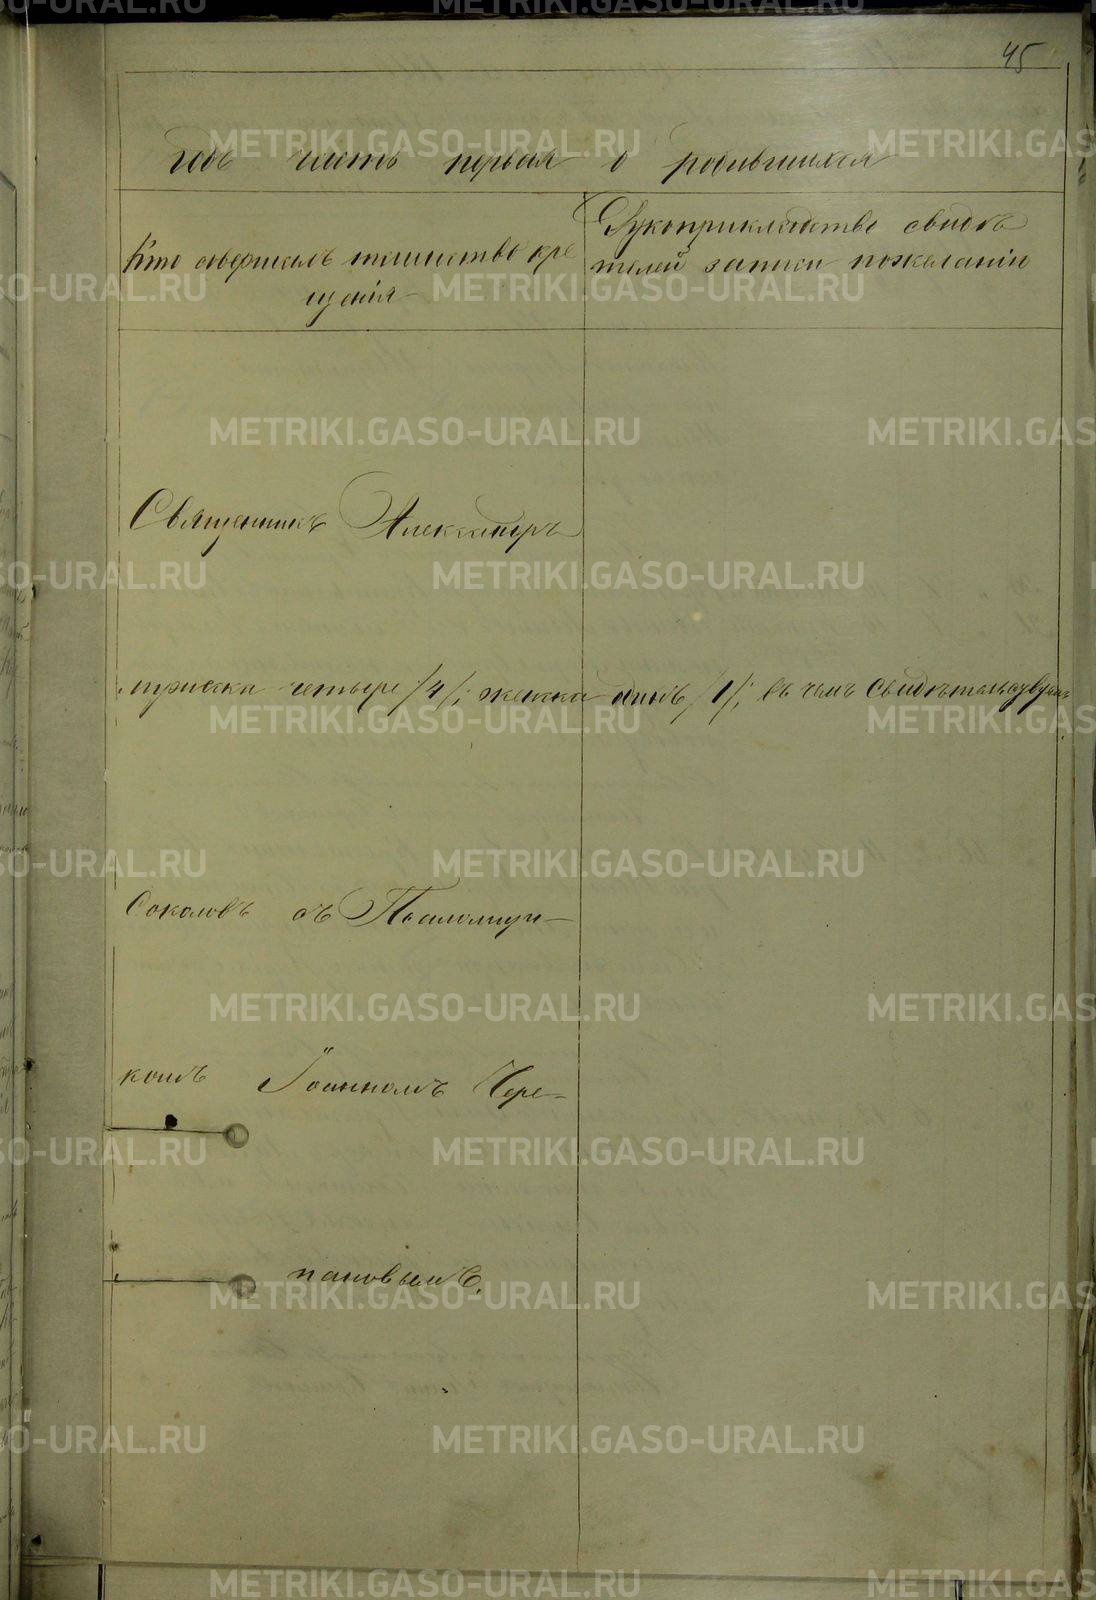 45
годъ часть первая о родившихся
Кто совершалъ таинство кре
щенія
Рукоприкладство свидѣ
телей записи по желанію
Священникъ Александръ
мужска четыре /4/; женска одинъ /1/; въ чемъ свидѣтельствуемъ
Соколовъ съ Псаломщи-
комъ Іоанномъ Чере-
пановымъ.
METRIKI.GASO-URAL.RU